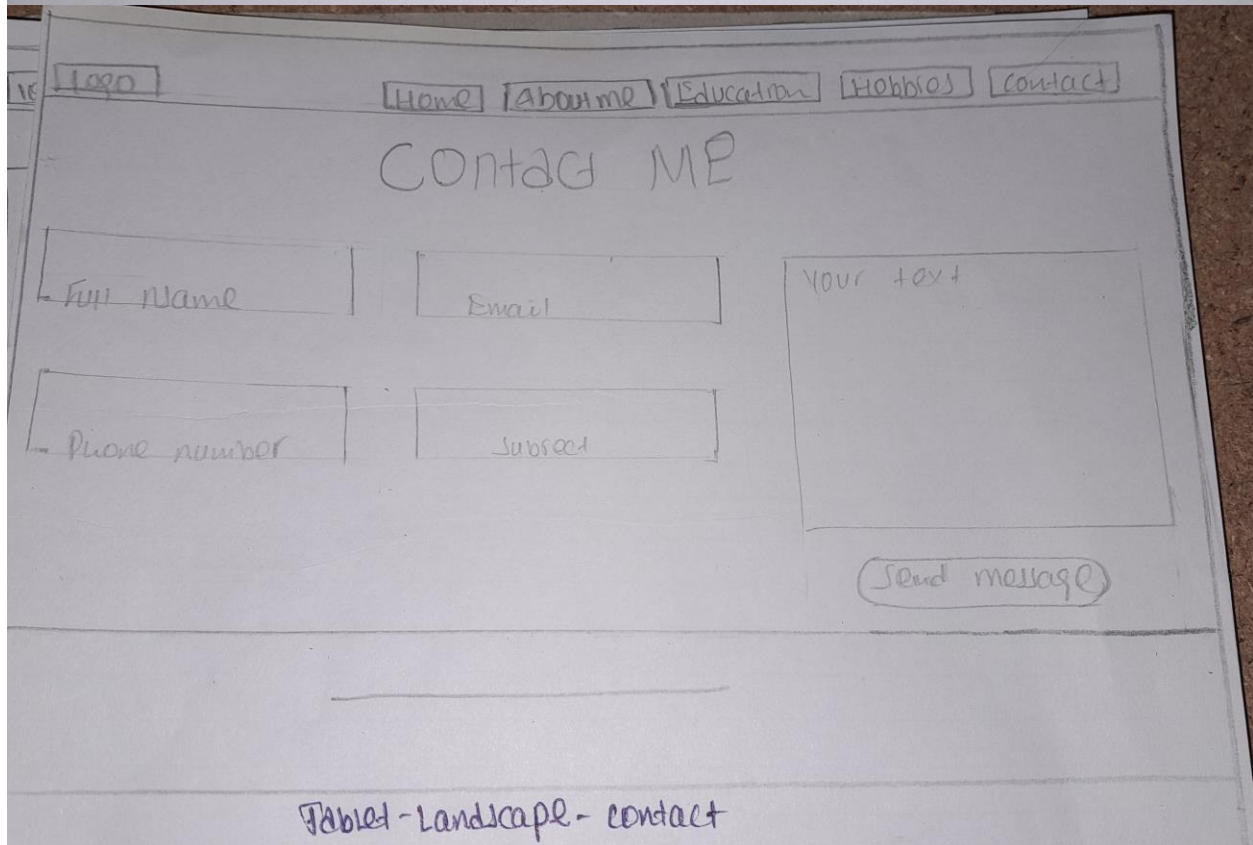 Logo Home About me Education Hobbies Contact
Contact ME
Full Name Email Your text
Phone number Subject
Send message
Tablet-Landscape-contact